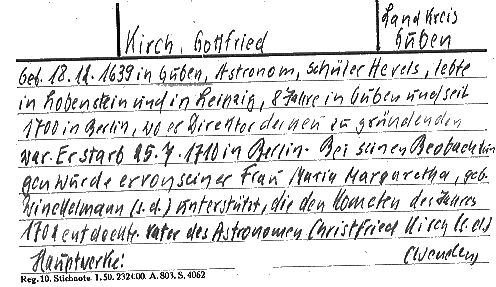 Kirch, Gottfried
Landkreis
Guben
Geb. 18.12.1639 in Guben, Astronom, Schüler Hevels, lebte
in Lobenstein und in Leipzig, 8 Jahre in Guben und seit
1700 in Berlin, wo er Direktor der neu zu gründenden
war. Er starb 25.7.1710 in Berlin. Bei seinen Beobachtun
gen wurde er von seiner Frau Maria Margaretha, geb.
Winckelmann (s.d.) unterstützt, die den Kometen des Jahres
1702 entdeckte. Vater des Astronomen Christfried Kirch (s.d.)
Hauptwerke:
(wenden)
Reg. 10. Stichnote. 1. 50. 232C00. A. 803. S. 4062